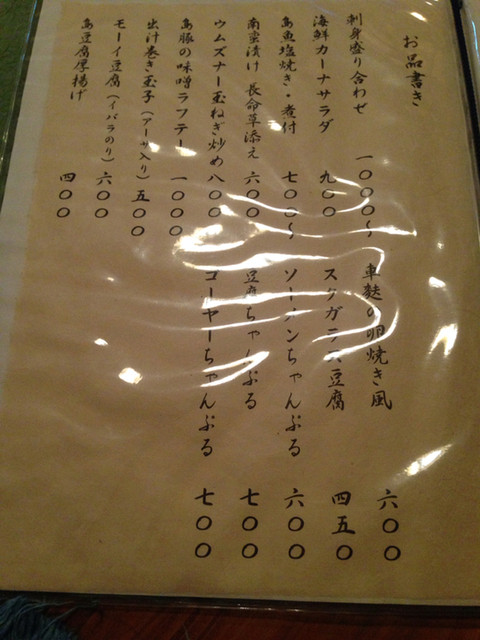 お品書き
刺身盛り合わせ 一〇〇〇〜
海鮮カーナサラダ 九〇〇
島魚塩焼き・煮付 七〇〇〜
南蛮漬け 長命草添え 六〇〇
ウムズナー玉ねぎ炒め 八〇〇
島豚の味噌ラフテー 一〇〇〇
出汁巻き玉子(アーサ入り) 五〇〇
モーイ豆腐(イバラのり) 六〇〇
島豆腐厚揚げ 四〇〇
車麩の卵焼き風 六〇〇
スクガラス豆腐 四五〇
ソーメンちゃんぷる 六〇〇
豆腐ちゃんぷる 七〇〇
ゴーヤーちゃんぷる 七〇〇